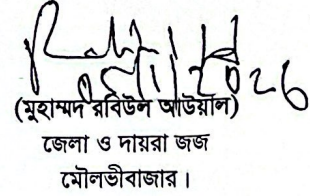 (মুহাম্মদ রবিউল আউয়াল)
জেলা ও দায়রা জজ
মৌলভীবাজার।